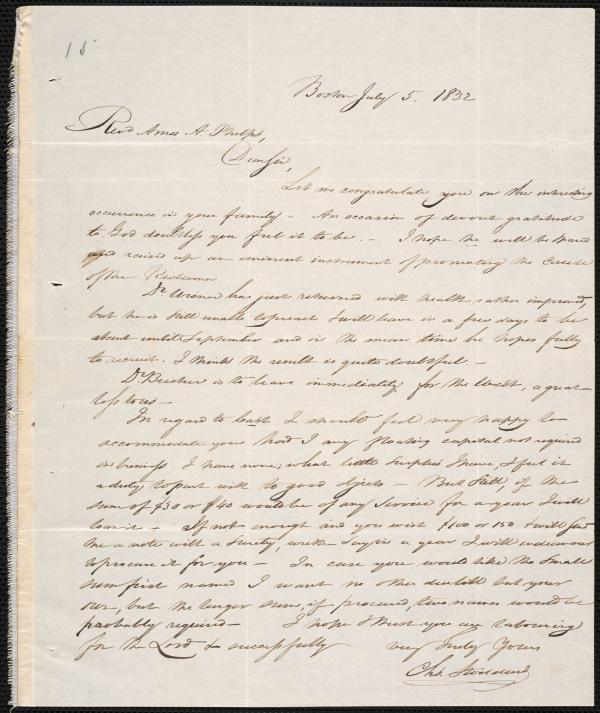 15
Boston July 5. 1832
Revd Amos A. Phelps,
Dear Sir,
Let me congratulate you on the interesting
occurrence in your family - An occasion of devout gratitude
to God doubtless you feel it to be. - I hope he will be spared
and raised up an eminent instrument of promoting the cause
of the Redeemer
Dr Wisner has just returned with health rather improved,
but he is still unable to preach & will leave in a few days to be
absent until September and in the mean time he hopes fully
to recruit. I think the result is quite doubtful. -
Dr Beecher is to leave immediately for the West, a great
loss to us -
In regard to cash I should feel very happy to
accommodate you had I any floating capital not required
in business. I have none, what little surplus I have, I feel it
a duty to part with to good objects - But still, if the
sum of $30 or $40 would be of any service for a year I will
loan it - If not enough and you wish $100 or 150 & will send
me a note with a surety, written say in a year I will endeavour
to procure it for you - In case you would like the small
sum first named I want no other due bill but your
own, but the larger sum, if procured, two names would be
probably required - I hope & trust you are labouring
for the Lord & successfully very truly Yours
Chs. Stoddard